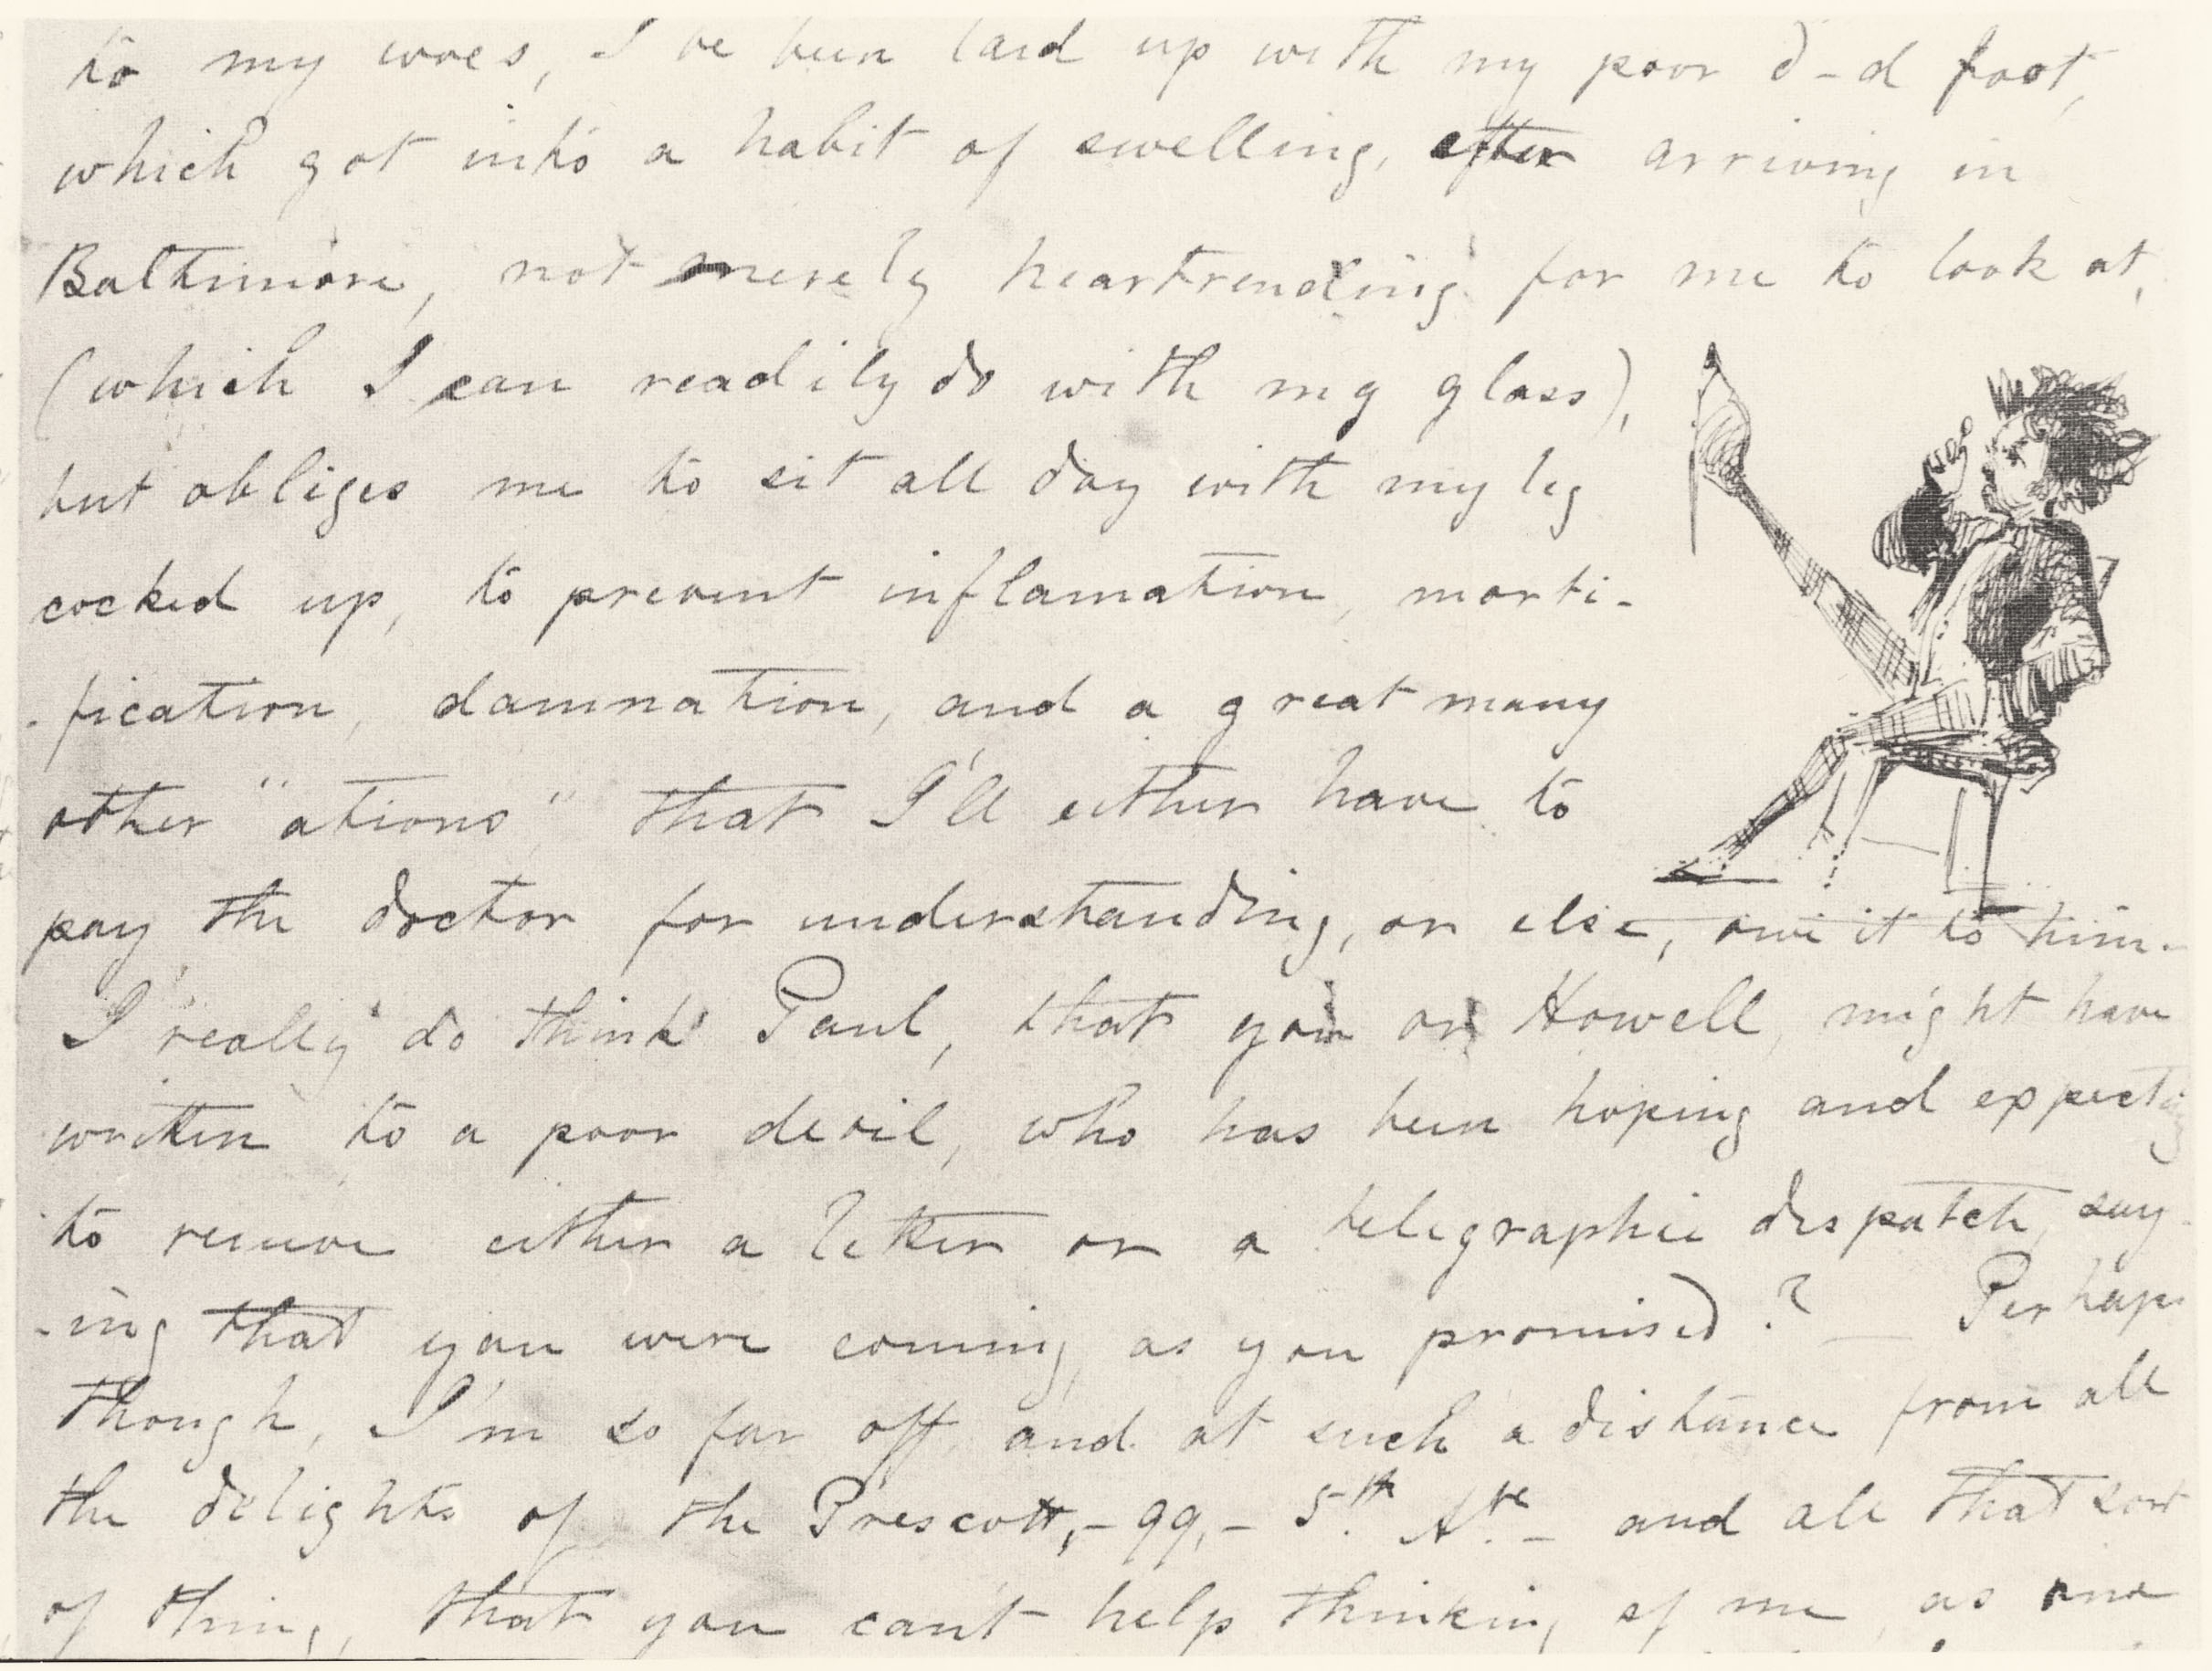 to my woes, I've been laid up with my poor d-d foot,
which got into a habit of swelling, after arriving in
Baltimore, not merely heartrending for me to look at,
(which I can readily do with my glass),
but obliges me to sit all day with my leg
cocked up, to prevent inflamation, morti-
-fication, damnation, and a great many
other "ations" that I'll either have to
pay the doctor for understanding, or else, owe it to him.
I really do think Paul, that you or Howell, might have
written to a poor devil, who has been hoping and expecting
to receive either a letter or a telegraphic dispatch, say-
-ing that you were coming, as you promised? — Perhaps
though, I'm so far off, and at such a distance from all
the delights of the Prescott,- 99,- 5th. Ave. - and all that sort
of thing, that you can't help thinking of me, as one